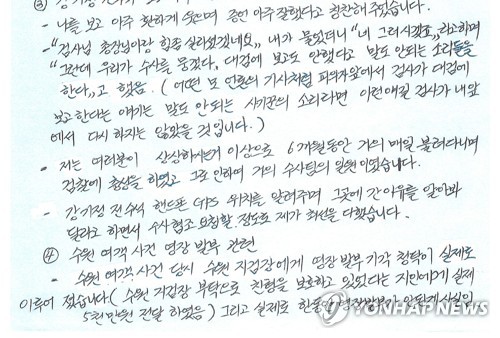 ③ 강기정 전수석
- 나를 보고 아주 환하게 웃으며 증언 아주 잘했다고 칭찬해 주었습니다.
- "검사님 총장님이랑 힘좀 실리셨겠네요" 내가 물었더니 "네 그러시겠죠" 라고하며
"그런데 우리가 수사를 뭉갰다, 대검에 보고도 안했다고 말도 안되는 소리들을
한다"고 했음. (어떤 모 언론의 기사처럼 피의자앞에서 검사가 대검에
보고한다는 얘기는 말도 안되는 사기꾼의 소리라면 이런얘길 검사가 내앞
에서 다시 하지는 않았을 것입니다.)
- 저는 여러분이 상상하시는거 이상으로 6개월동안 거의 매일 불려다니며
검찰에 충성을 하였고 그로 인하여 거의 수사팀의 일원이였습니다.
- 강기정 전수석 핸드폰 GPS 위치를 알려주며 그곳에 간 이유를 알아봐
달라고 하면서 수사협조 요청할 정도로 제가 최선을 다했습니다.
④ 수원 여객 사건 영장 발부 관련
- 수원 여객 사건 당시 수원 지검장에게 영장 발부 기각 청탁이 실제로
이루어 졌습니다 (수원 지검장 부탁으로 친형을 보호하고 있었다는 지인에게 실제
5천만원 전달 하였음) 그리고 실제로 한동안
YONHAP NEWS